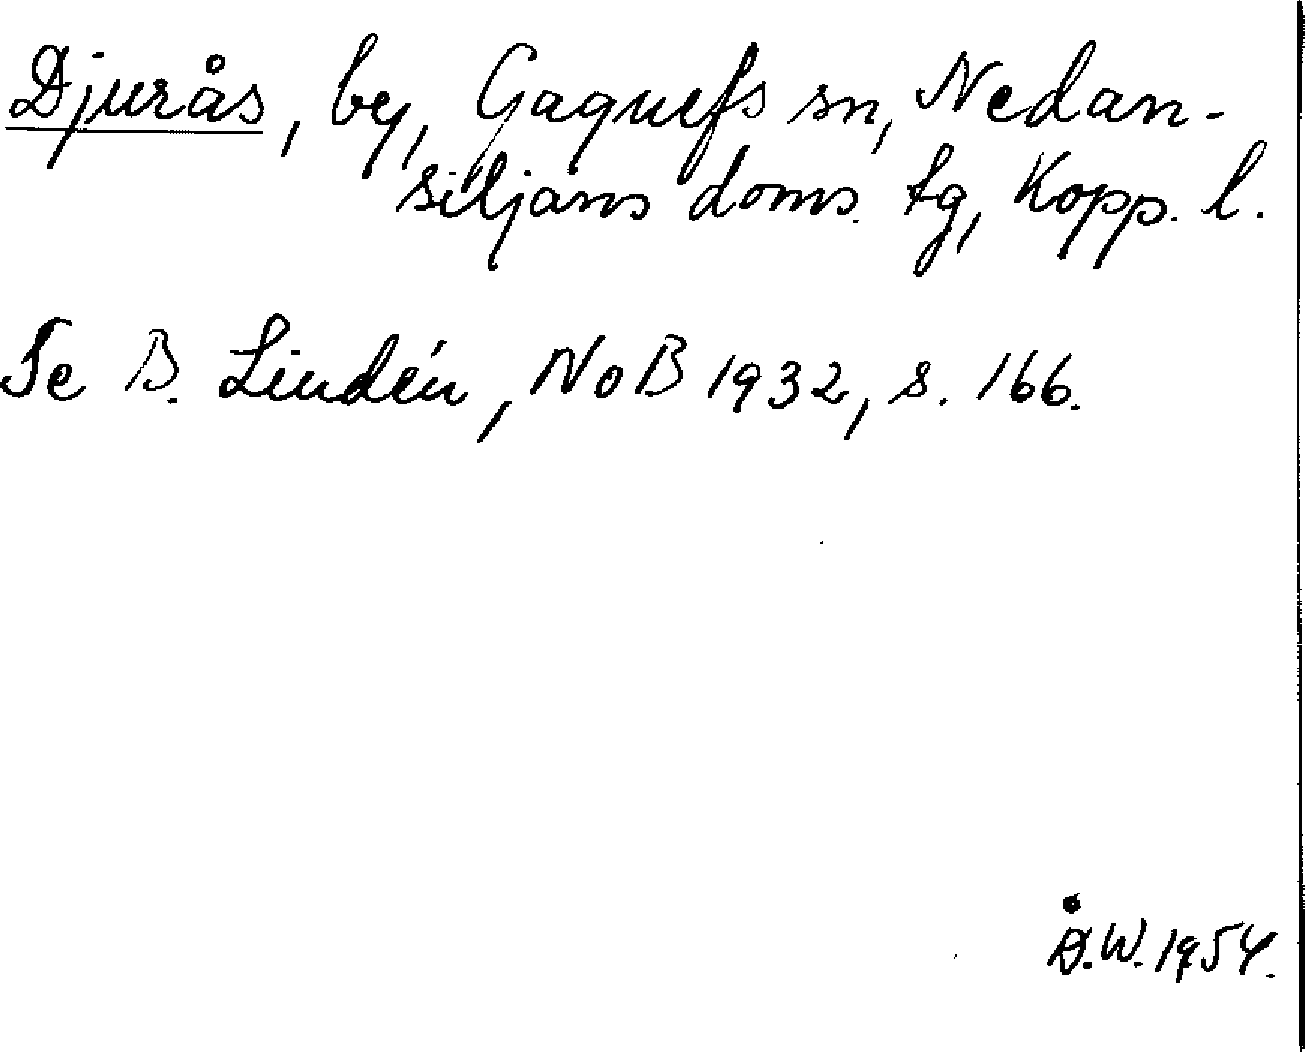 Djurås, by, Gagnefs sn, Nedan-
siljans doms. tg, Kopp. l.
Se B. Lindén, NoB 1932, s. 166.
Å.W. 1954.